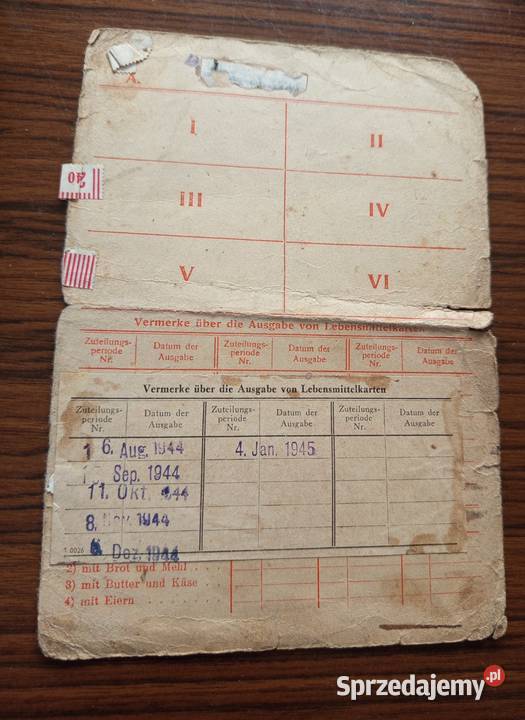 X.
I II
III IV
V VI
40
Vermerke über die Ausgabe von Lebensmittelkarten
Zuteilungs-periode Nr. Datum der Ausgabe Zuteilungs-periode Nr. Datum der Ausgabe Zuteilungs-periode Nr. Datum der Ausgabe
Vermerke über die Ausgabe von Lebensmittelkarten
Zuteilungs-periode Nr. Datum der Ausgabe Zuteilungs-periode Nr. Datum der Ausgabe Zuteilungs-periode Nr. Datum der Ausgabe
6. Aug. 1944 4. Jan. 1945
Sep. 1944
11. Okt. 1944
8. Nov. 1944
Dez. 1944
2) mit Brot und Mehl . .
3) mit Butter und Käse .
4) mit Eiern . . . .
Sprzedajemy.pl